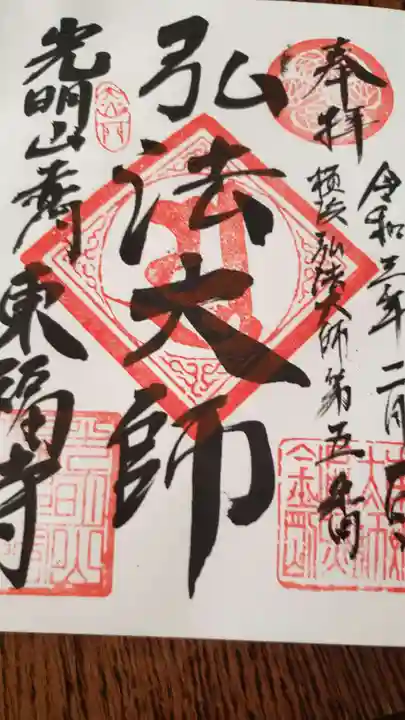 奉拝
令和三年二月一日
横浜弘法大師第五番
弘法大師
光明山赤門東福寺